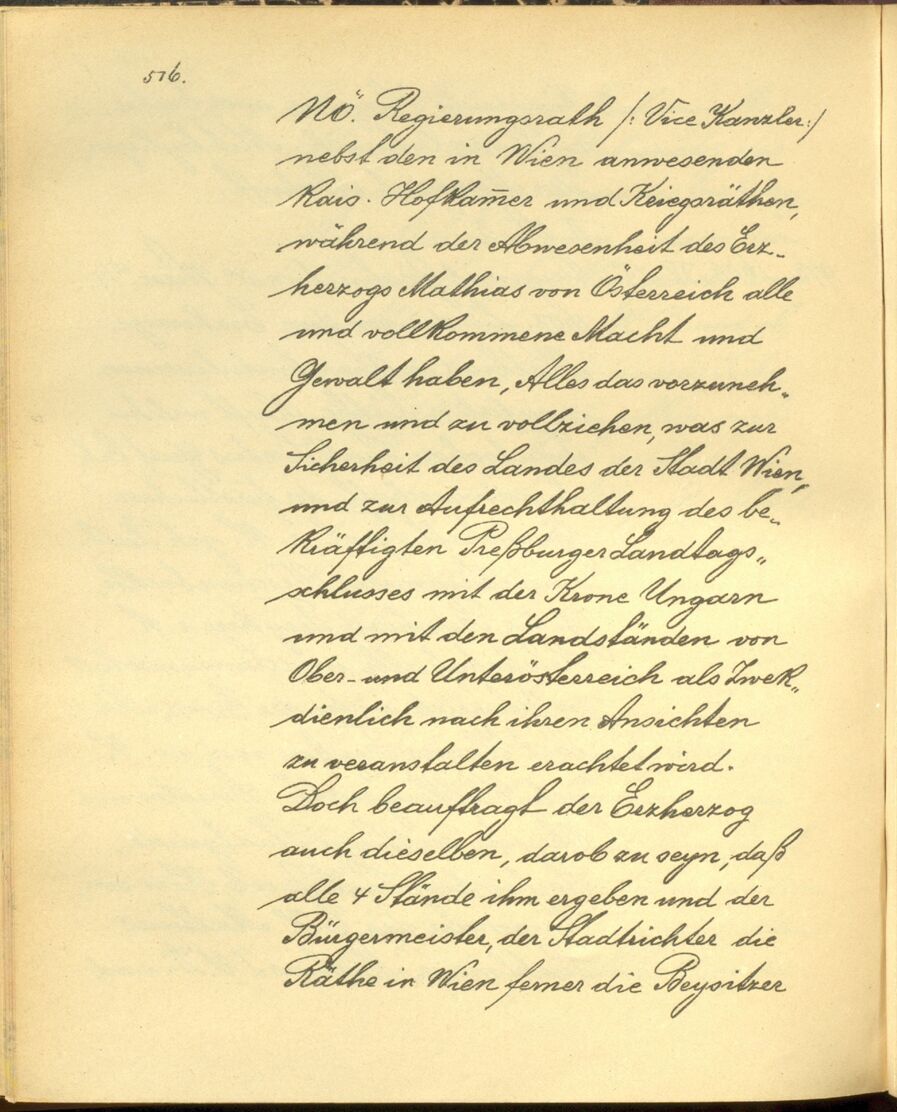 516.
NÖ. Regierungsrath /: Vice Kanzler:/
nebst den in Wien anwesenden
Kais. Hofkam̅er und Kriegsräthen,
während der Abwesenheit des Erz-
herzogs Mathias von Österreich alle
und vollkommene Macht und
Gewalt haben, Alles das vorzuneh„
men und zu vollziehen, was zur
Sicherheit des Landes der Stadt Wien,
und zur Aufrechthaltung des be„
kräftigten Preßburger Landtags„
schlusses mit der Krone Ungarn
und mit den Landständen von
Ober- und Unterösterreich als Zwek„
dienlich nach ihren Ansichten
zu veranstalten erachtet wird.
Doch beauftragt der Erzherzog
auch dieselben, darob zu seyn, daß
alle 4 Stände ihm ergeben und der
Bürgermeister, der Stadtrichter die
Räthe in Wien ferner die Beysitzer